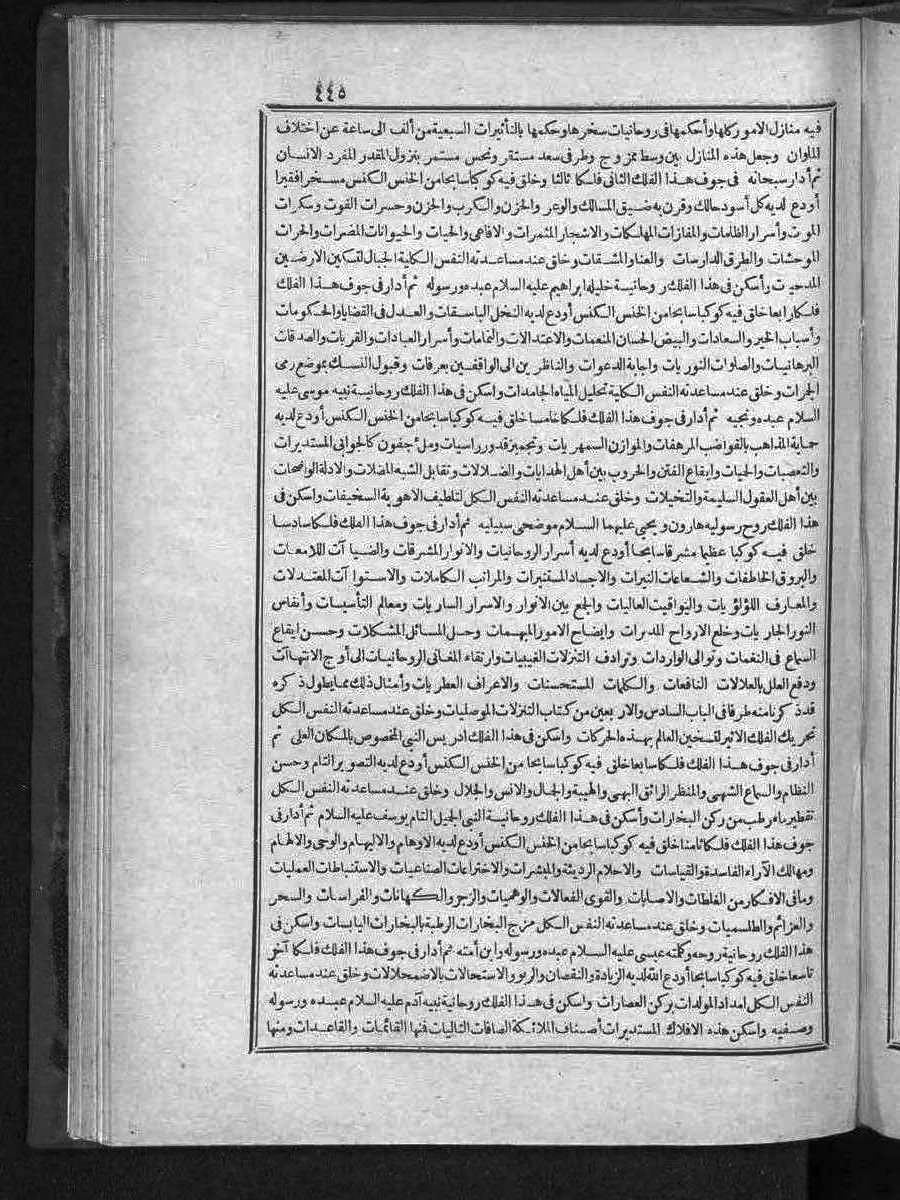 ٤٤٥
فيه منازل الامور كلها وأحكمها فى روحانيات سخرها وحكمها بالتأثيرات السبعية من ألف الى ساعة عن اختلاف
الملوان وجعل هذه المنازل بين وسط ممزوج وطرفى سعد مستقر ونحس مستمر بنزول المقدر المفرد الانسان
ثم أدار سبحانه فى جوف هذا الفلك الثانى فلكا ثالثا وخلق فيه كوكبا سابحا من الخنس الكنس مسخرا فقيرا
أودع لديه كل أسود حالك وقرن به ضيق المسالك والوعر والحزن والكرب والحزن وحسرات الفوت وسكرات
الموت وأسرار الظلمات والمفازات المهلكات والاشجار المثمرات والافاعى والحيات والحيوانات المضرات والحرات
الموحشات والطرق الدارسات والعنا والمشقات وخلق عند مساعدته النفس الكلية الجبال لتسكين الارضين
المدحيت وأسكن فى هذا الفلك روحانية خليله ابراهيم عليه السلام عبده ورسوله ثم أدار فى جوف هذا الفلك
فلكا رابعا خلق فيه كوكبا سابحا من الخنس الكنس أودع لديه النخل الباسقات والعدل فى القضايا والحكومات
وأسباب الخير والسعادات والبيض الحسان المنعمات والاعتدالات والتمامات وأسرار العبادات والقربات والصدقات
البرهانيات والصلوات النوريات واجابة الدعوات والناظرين الى الواقفين بعرفات وقبول النسك بموضع رمى
الجرات وخلق عند مساعدته النفس الكلية تحليل المياه الجامدات واسكن فى هذا الفلك روحانية نبيه موسى عليه
السلام عبده ونجيه ثم أدار فى جوف هذا الفلك فلكا خامسا خلق فيه كوكبا سابحا من الخنس الكنس أودع لديه
حماية المذاهب بالقواضب المرهفات والموازن السمهريات وتجميز قدور راسيات وملء جفون كالجوابى المستديرات
والتعصبات والحيات وايقاع الفتن والحروب بين أهل الهدايات والضلالات وتقابل الشبه المضلات والادلة الواضحات
بين أهل العقول السليمة والتخيلات وخلق عند مساعدته النفس الكل لتلطيف الاهوية السخيفات واسكن فى
هذا الفلك روح رسوليه هارون ويحيى عليهما السلام موضحى سبيليه ثم أدار فى جوف هذا الفلك فلكا سادسا
خلق فيه كوكبا عظيما مشرقا سابحا أودع لديه أسرار الروحانيات والانوار المشرقات والضيا آت اللامعات
والبروق الخاطفات والشعاعات النيرات والاجساد المستنيرات والمراتب الكاملات والاستوا آت المعتدلات
والمعارف اللؤلؤيات واليواقيت العاليات والجمع بين الانوار والاسرار الساريات ومعالم التأسيسات وأنفاس
النور الجاريات وخلع الارواح المدبرات وايضاح الامور المبهمات وحل المسائل المشكلات وحسن ايقاع
السماع فى النغمات وتوالى الواردات وترادف التنزلات الغيبيات وارتقاء المعانى الروحانيات الى أوج الانتهاآت
ودفع العلل بالعلالات النافعات والكلمات المستحسنات والاعراف العطريات وأمثال ذلك مما يطول ذكره
قد ذكرنا منه طرفا فى الباب السادس والاربعين من كتاب التنزلات الموصليات وخلق عند مساعدته النفس الكل
تحريك الفلك الاثير لتسخين العالم بهذه الحركات واسكن فى هذا الفلك ادريس النبى المخصوص بالمكان العلى ثم
أدار فى جوف هذا الفلك فلكا سابعا خلق فيه كوكبا سابحا من الخنس الكنس أودع لديه التصوير التام وحسن
النظام والسماع الشهى والمنظر الرائق البهى والهيبة والجمال والانس والجلال وخلق عند مساعدته النفس الكل
تقطير ماء رطب من ركن البخارات وأسكن فى هذا الفلك روحانية النبى الجميل التام يوسف عليه السلام ثم أدار فى
جوف هذا الفلك فلكا ثامنا خلق فيه كوكبا سابحا من الخنس الكنس أودع لديه الاوهام والالهام والوحى والالهام
ومهالك الآراء الفاسدة والقياسات والاحلام الرديئة والمبشرات والاختراعات الصناعيات والاستنباطات العمليات
وما فى الافكار من الغلطات والاصابات والقوى الفعالات والوهميات والزجر والكهانات والفراسات والسحر
والعزائم والطلسميات وخلق عند مساعدته النفس الكل مزج البخارات الرطبة بالبخارات اليابسات واسكن فى
هذا الفلك روحانية روحه وكلمته عيسى عليه السلام عبده ورسوله وابن أمته ثم أدار فى جوف هذا الفلك فلكا آخر
تاسعا خلق فيه كوكبا سابحا أودع الله لديه الزيادة والنقصان والربو والاستحالات بالاضمحلالات وخلق عند مساعدته
النفس الكل امداد المولدات بركن العصارات واسكن فى هذا الفلك روحانية نبيه آدم عليه السلام عبده ورسوله
وصفيه واسكن هذه الافلاك المستديرات أصناف الملائكة الصافات التاليات فنها القائمات والقاعدات ومنها